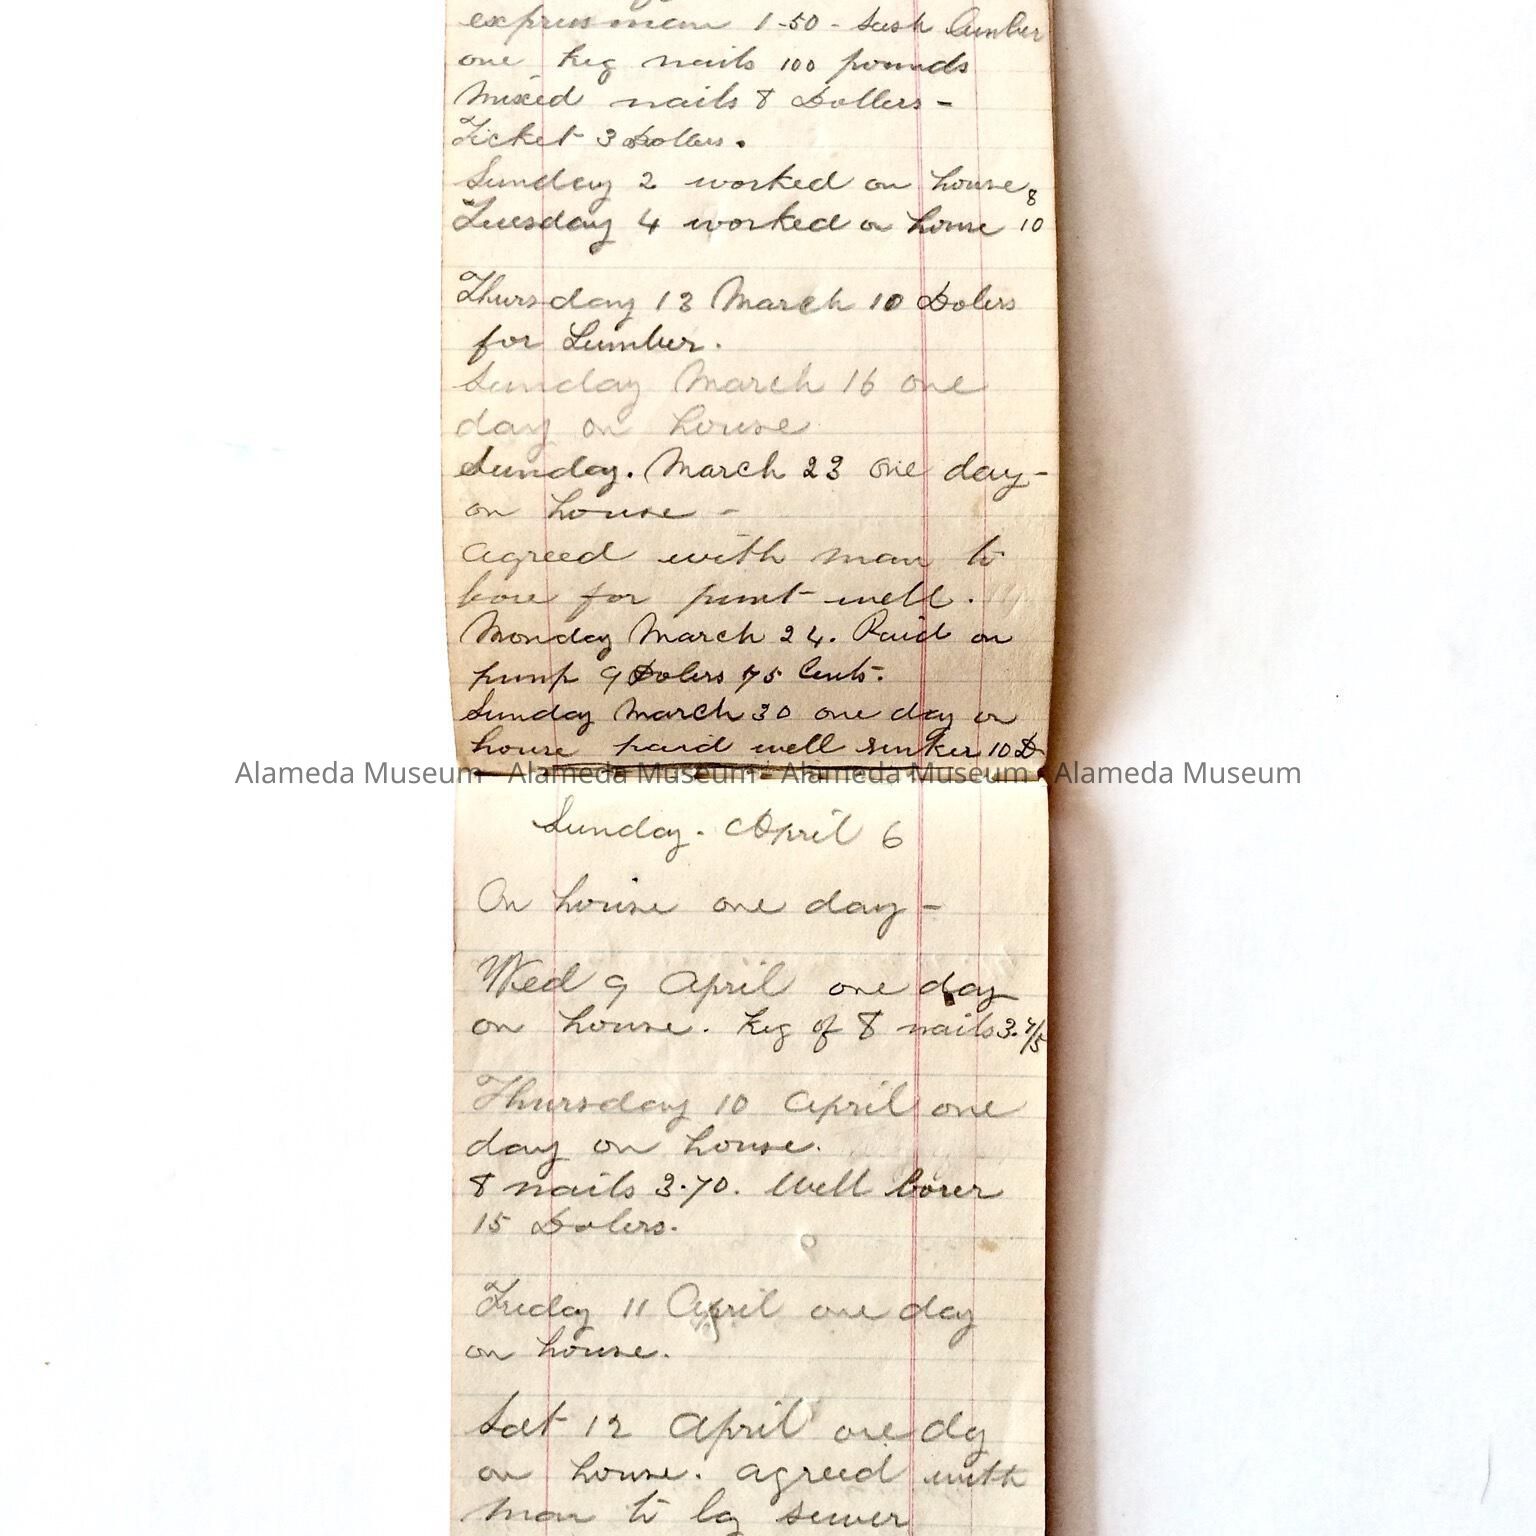 expressman 1-50 - Sash Lumber
one Keg nails 100 pounds
Mixed nails 8 Dollers -
Ticket 3 Dollers.
Sunday 2 worked on house 8
Tuesday 4 worked on house 10
Thursday 13 March 10 Dolers
for Lumber.
Sunday March 16 one
day on house
Sunday. March 23 one day -
on house -
agreed with man to
bore for well.
Monday March 24. Paid on
pump 9 Dolers 75 Cents.
Sunday March 30 one day on
house paid well sinker 10 D
Alameda Museum - Alameda Museum - Alameda Museum - Alameda Museum
Sunday. April 6
On house one day -
Wed 9 April one day
on house. Keg of 8 nails 3.75
Thursday 10 April one
day on house.
8 nails 3.70. Well borer
15 Dolers.
Friday 11 April one day
on house.
Sat 12 April one dy
on house. agreed with
man to lay sewer